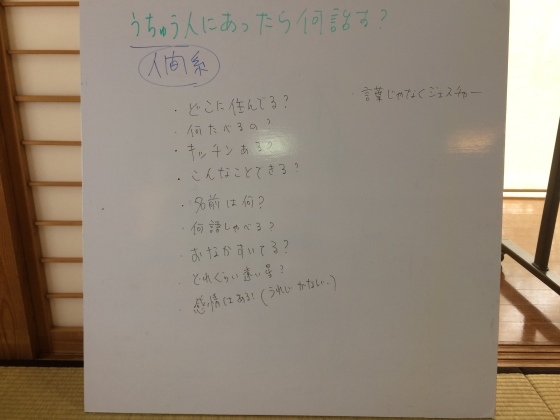 うちゅう人にあったら何話す?
人間系
・どこに住んでる?
・何たべるの?
・キッチンある?
・こんなことできる?
・名前は何?
・何語しゃべる?
・おなかすいてる?
・どれくらい遠い星?
・感情はある?(うれしい かなしい.)
・言葉じゃなくジェスチャー